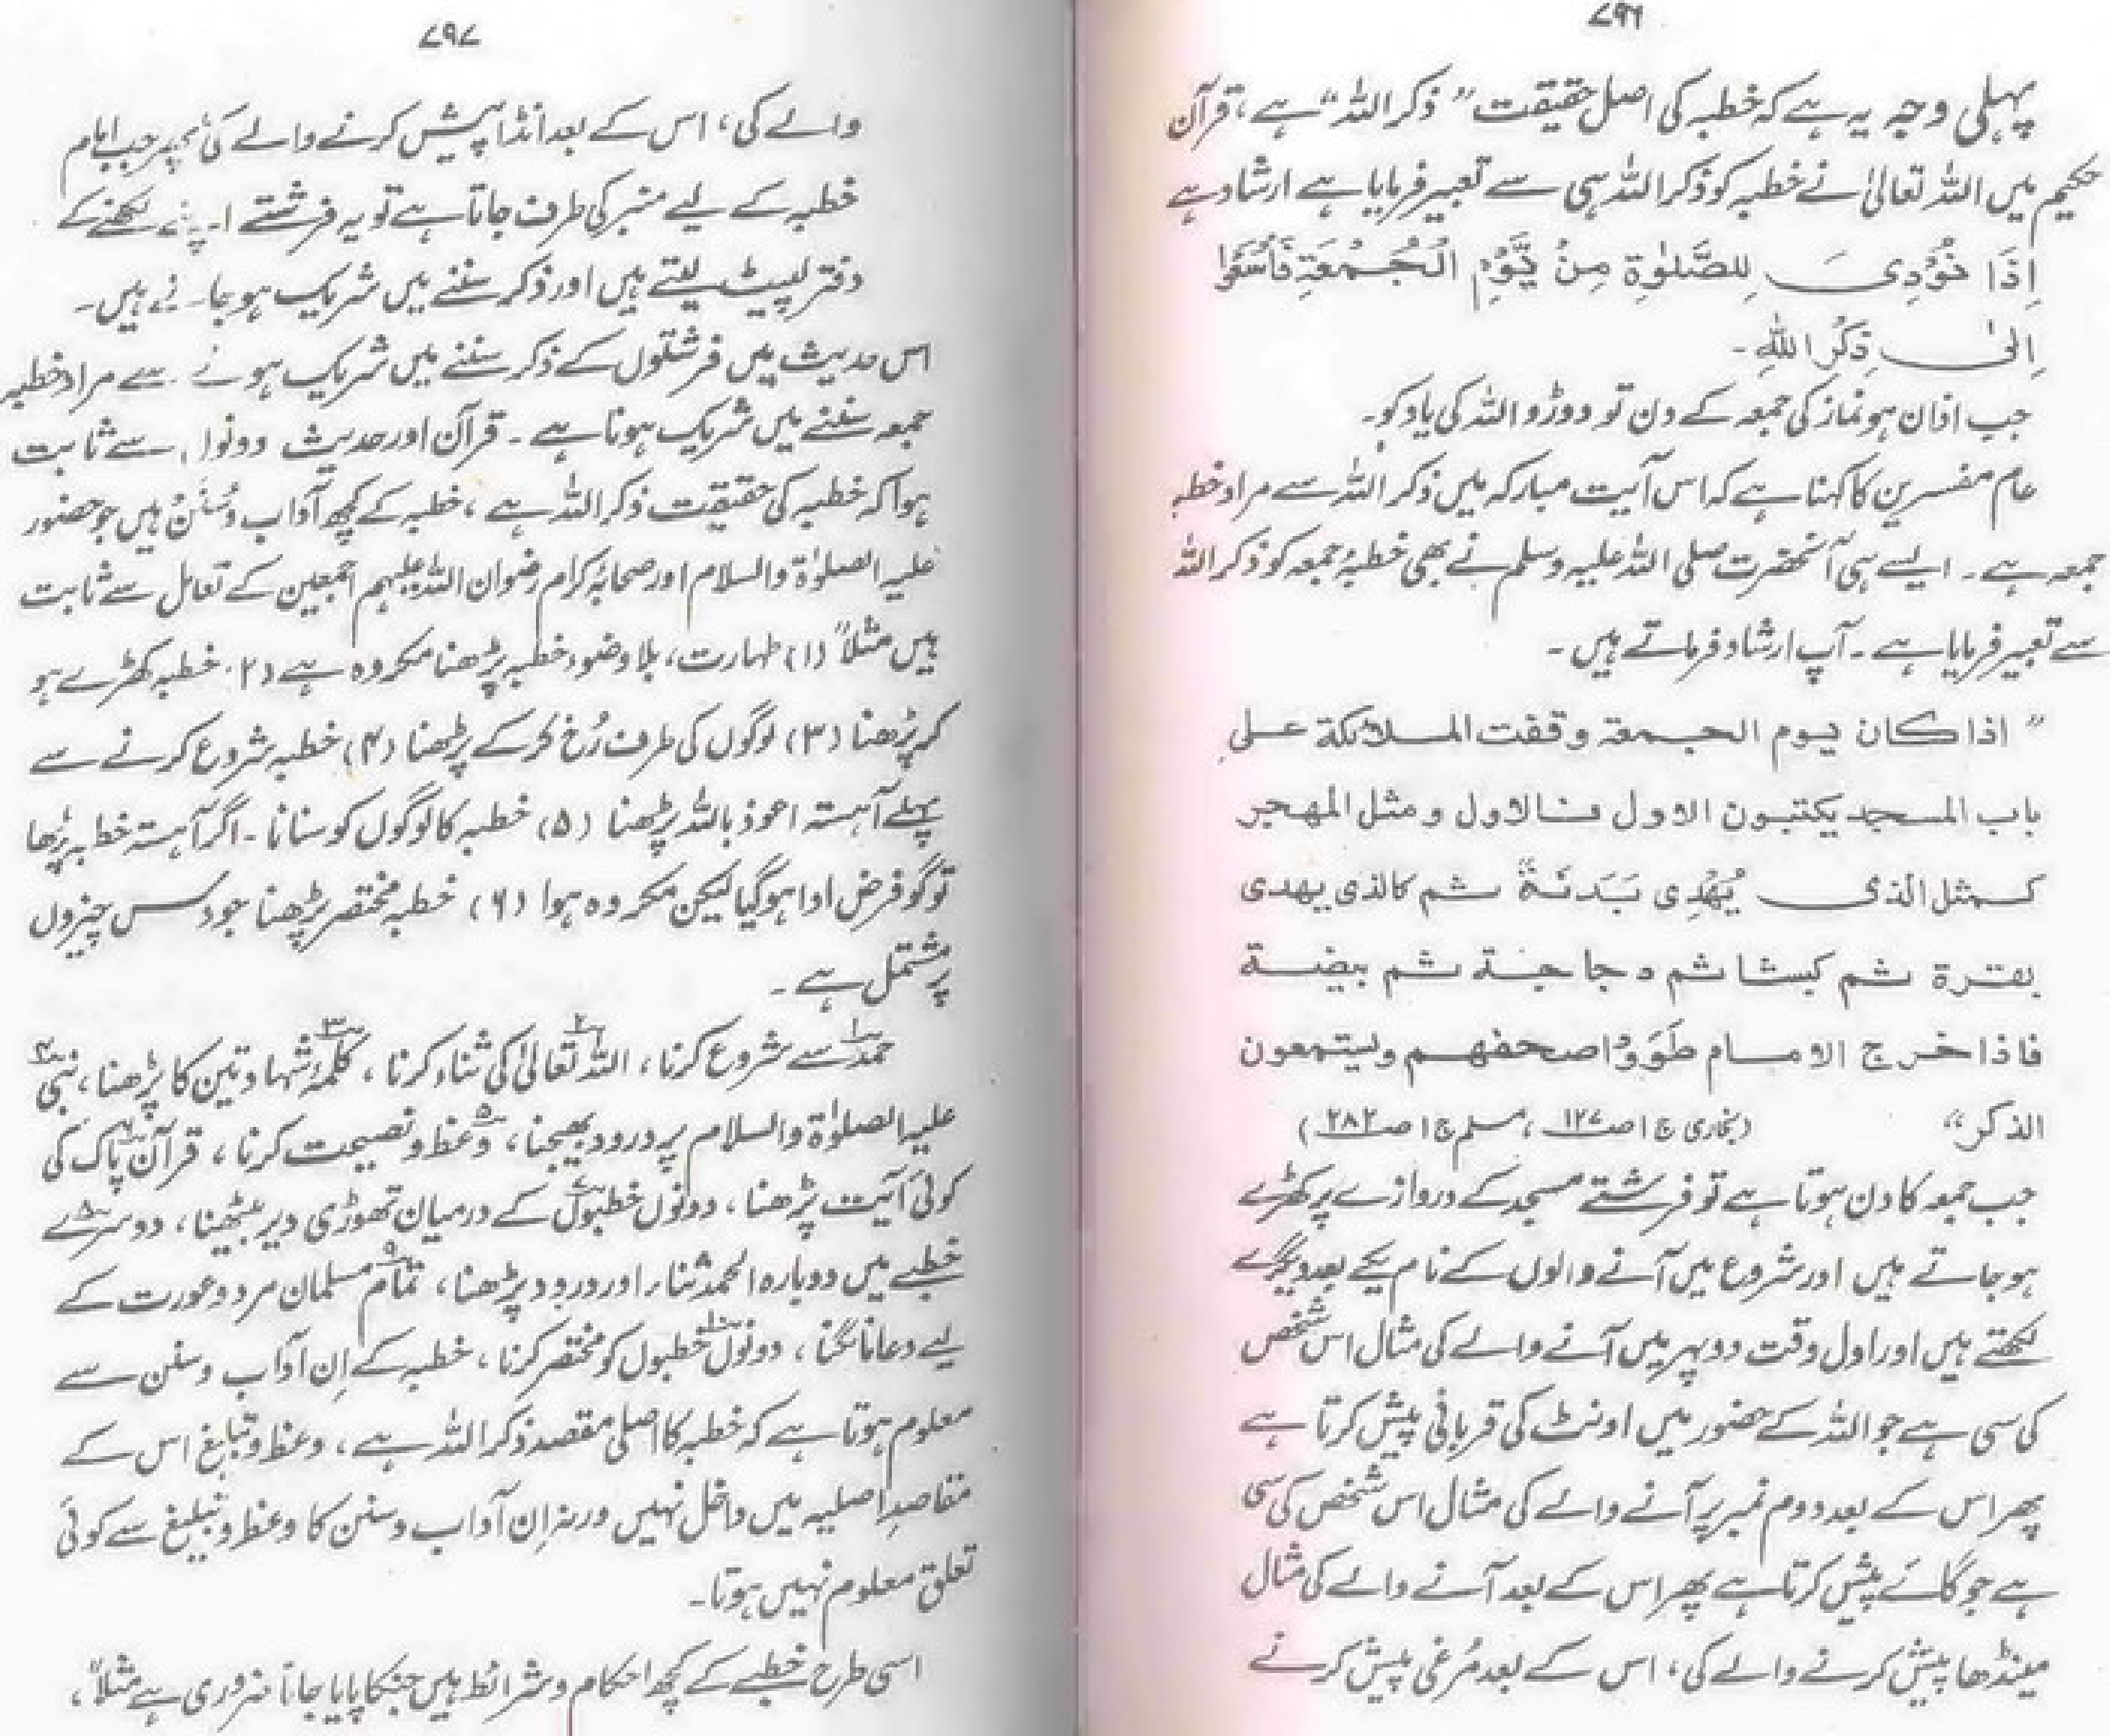 ۷۹۶
پہلی وجہ یہ ہے کہ خطبہ کی اصل حقیقت ”ذکر اللہ“ ہے، قرآن
حکیم میں اللہ تعالیٰ نے خطبہ کو ذکر اللہ ہی سے تعبیر فرمایا ہے ارشاد ہے
اِذَا نُوْدِیَ لِلصَّلٰوۃِ مِنْ یَّوْمِ الْجُمُعَۃِ فَاسْعَوْا
اِلٰی ذِکْرِ اللّٰہِ ۔
جب اذان ہو نماز کی جمعہ کے دن تو دوڑو اللہ کی یاد کو۔
عام مفسرین کا کہنا ہے کہ اس آیت مبارکہ میں ذکر اللہ سے مراد خطبہ
جمعہ ہے۔ ایسے ہی آنحضرت صلی اللہ علیہ وسلم نے بھی خطبۂ جمعہ کو ذکر اللہ
سے تعبیر فرمایا ہے۔ آپ ارشاد فرماتے ہیں۔
” اذا کان یوم الجمعۃ وقفت الملائکۃ علی
باب المسجد یکتبون الاول فالاول ومثل المھجر
کمثل الذی یُھْدِی بَدَنَۃً ثم کالذی یھدی
بقرۃ ثم کبشا ثم دجاجۃ ثم بیضۃ
فاذا خرج الامام طَوَوْا صحفھم ویستمعون
الذکر“ (بخاری ج ۱ ص ۱۲۷، مسلم ج ۱ ص ۲۸۲)
جب جمعہ کا دن ہوتا ہے تو فرشتے مسجد کے دروازے پر کھڑے
ہو جاتے ہیں اور شروع میں آنے والوں کے نام یکے بعد دیگرے
لکھتے ہیں اور اول وقت دوپہر میں آنے والے کی مثال اس شخص
کی سی ہے جو اللہ کے حضور میں اونٹ کی قربانی پیش کرتا ہے
پھر اس کے بعد دوم نمبر پر آنے والے کی مثال اس شخص کی سی
ہے جو گائے پیش کرتا ہے پھر اس کے بعد آنے والے کی مثال
مینڈھا پیش کرنے والے کی، اس کے بعد مُرغی پیش کرنے
۷۹۷
والے کی، اس کے بعد انڈا پیش کرنے والے کی، پھر جب امام
خطبہ کے لیے منبر کی طرف جاتا ہے تو یہ فرشتے اپنے لکھنے کے
دفتر لپیٹ لیتے ہیں اور ذکر سننے میں شریک ہو جاتے ہیں۔
اس حدیث میں فرشتوں کے ذکر سننے میں شریک ہونے سے مراد خطبہ
جمعہ سننے میں شریک ہونا ہے۔ قرآن اور حدیث دونوں سے ثابت
ہوا کہ خطبہ کی حقیقت ذکر اللہ ہے، خطبہ کے کچھ آداب وسُنَنْ ہیں جو حضور
علیہ الصلوٰۃ والسلام اور صحابۂ کرام رضوان اللہ علیہم اجمعین کے تعامل سے ثابت
ہیں مثلاً (۱) طہارت، بلا وضوء خطبہ پڑھنا مکروہ ہے (۲) خطبہ کھڑے ہو
کر پڑھنا (۳) لوگوں کی طرف رُخ کر کے پڑھنا (۴) خطبہ شروع کرنے سے
پہلے آہستہ اعوذ باللہ پڑھنا (۵) خطبہ کا لوگوں کو سنانا۔ اگر آہستہ خطبہ پڑھا
تو گو فرض ادا ہو گیا لیکن مکروہ ہوا (۶) خطبہ مختصر پڑھنا جو دس چیزوں
پر مشتمل ہے۔
حمد۱ سے شروع کرنا، اللہ تعالیٰ۲ کی ثناء کرنا، کلمۂ۳ شہادتین کا پڑھنا، نبی۴
علیہ الصلوٰۃ والسلام پر درود بھیجنا، وعظ۵ و نصیحت کرنا، قرآن۶ پاک کی
کوئی آیت پڑھنا، دونوں خطبوں۷ کے درمیان تھوڑی دیر بیٹھنا، دوسرے۸
خطبے میں دوبارہ الحمد ثناء اور درود پڑھنا، تمام۹ مسلمان مرد وعورت کے
لیے دعا مانگنا، دونوں۱۰ خطبوں کو مختصر کرنا، خطبہ کے اِن آداب وسنن سے
معلوم ہوتا ہے کہ خطبہ کا اصلی مقصد ذکر اللہ ہے، وعظ وتبلیغ اس کے
مقاصدِ اصلیہ میں داخل نہیں ورنہ اِن آداب وسنن کا وعظ وتبلیغ سے کوئی
تعلق معلوم نہیں ہوتا۔
اسی طرح خطبے کے کچھ احکام وشرائط ہیں جنکا پایا جانا ضروری ہے مثلاً،